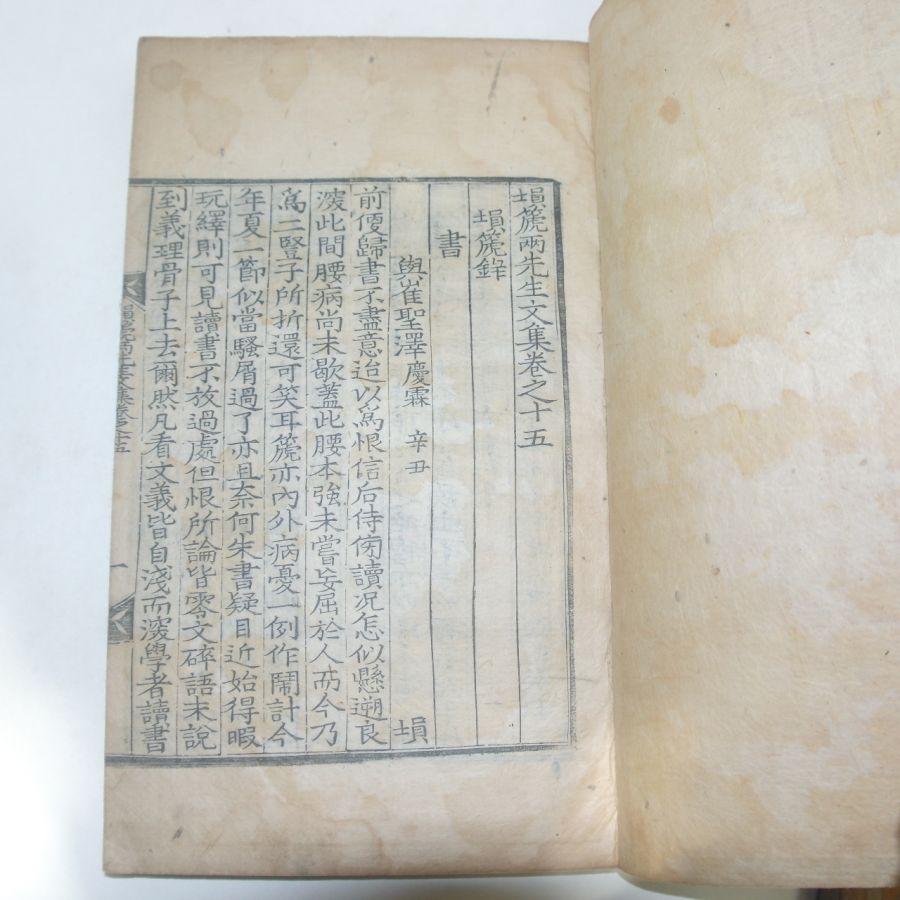 塤篪兩先生文集卷之十五
塤篪錄
書
與崔聖澤慶霖 辛丑 塤
前便歸書不盡意迨以爲恨信后侍傍讀况怎似懸遡良
深此間腰病尚未歇蓋此腰本強未嘗妄屈於人而今乃
爲二豎子所折還可笑耳篪亦內外病憂一例作鬧計今
年夏一節似當騷屑過了亦且奈何朱書疑目近始得暇
玩繹則可見讀書不放過處但恨所論皆零文碎語未說
到義理骨子上去爾然凡看文義皆自淺而深學者讀書
塤篪兩先生文集卷之十五 一